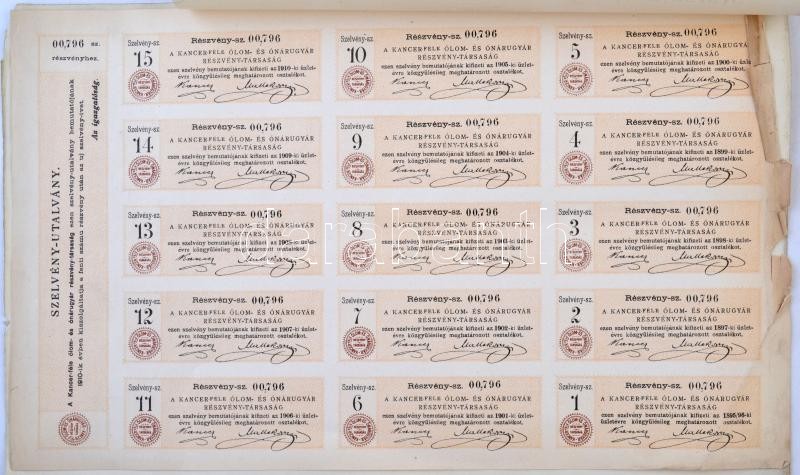 00,796 sz.
részvényhez.
SZELVÉNY-UTALVÁNY.
A Kancer-féle ólom- és ónárugyár részvény-társaság ezen szelvény-utalvány bemutatójának
1910-iz évben kiszolgáltatja a fenti számu részvény után az uj szelvény-ívet.
Az igazgatóság.
Szelvény-sz.
15
Részvény-sz. 00,796
A KANCER-FELE ÓLOM- ÉS ÓNÁRUGYÁR
RÉSZVÉNY-TÁRSASÁG
ezen szelvény bemutatójának kifizeti az 1910-ki üzlet-
évre közgyülésileg meghatározott osztalékot.
Szelvény-sz.
10
Részvény-sz. 00,796
A KANCER-FELE ÓLOM- ÉS ÓNÁRUGYÁR
RÉSZVÉNY-TÁRSASÁG
ezen szelvény bemutatójának kifizeti az 1905-ki üzlet-
évre közgyülésileg meghatározott osztalékot.
Szelvény-sz.
5
Részvény-sz. 00,796
A KANCER-FELE ÓLOM- ÉS ÓNÁRUGYÁR
RÉSZVÉNY-TÁRSASÁG
ezen szelvény bemutatójának kifizeti az 1900-ki üzlet-
évre közgyülésileg meghatározott osztalékot.
Szelvény-sz.
14
Részvény-sz. 00,796
A KANCER-FELE ÓLOM- ÉS ÓNÁRUGYÁR
RÉSZVÉNY-TÁRSASÁG
ezen szelvény bemutatójának kifizeti az 1909-ki üzlet-
évre közgyülésileg meghatározott osztalékot.
Szelvény-sz.
9
Részvény-sz. 00,796
A KANCER-FELE ÓLOM- ÉS ÓNÁRUGYÁR
RÉSZVÉNY-TÁRSASÁG
ezen szelvény bemutatójának kifizeti az 1904-ki üzlet-
évre közgyülésileg meghatározott osztalékot.
Szelvény-sz.
4
Részvény-sz. 00,796
A KANCER-FELE ÓLOM- ÉS ÓNÁRUGYÁR
RÉSZVÉNY-TÁRSASÁG
ezen szelvény bemutatójának kifizeti az 1899-ki üzlet-
évre közgyülésileg meghatározott osztalékot.
Szelvény-sz.
13
Részvény-sz. 00,796
A KANCER-FELE ÓLOM- ÉS ÓNÁRUGYÁR
RÉSZVÉNY-TÁRSASÁG
ezen szelvény bemutatójának kifizeti az 1908-ki üzlet-
évre közgyülésileg meghatározott osztalékot.
Szelvény-sz.
8
Részvény-sz. 00,796
A KANCER-FELE ÓLOM- ÉS ÓNÁRUGYÁR
RÉSZVÉNY-TÁRSASÁG
ezen szelvény bemutatójának kifizeti az 1903-ki üzlet-
évre közgyülésileg meghatározott osztalékot.
Szelvény-sz.
3
Részvény-sz. 00,796
A KANCER-FELE ÓLOM- ÉS ÓNÁRUGYÁR
RÉSZVÉNY-TÁRSASÁG
ezen szelvény bemutatójának kifizeti az 1898-ki üzlet-
évre közgyülésileg meghatározott osztalékot.
darabanth
Szelvény-sz.
12
Részvény-sz. 00,796
A KANCER-FELE ÓLOM- ÉS ÓNÁRUGYÁR
RÉSZVÉNY-TÁRSASÁG
ezen szelvény bemutatójának kifizeti az 1907-ki üzlet-
évre közgyülésileg meghatározott osztalékot.
Szelvény-sz.
7
Részvény-sz. 00,796
A KANCER-FELE ÓLOM- ÉS ÓNÁRUGYÁR
RÉSZVÉNY-TÁRSASÁG
ezen szelvény bemutatójának kifizeti az 1902-ki üzlet-
évre közgyülésileg meghatározott osztalékot.
Szelvény-sz.
2
Részvény-sz. 00,796
A KANCER-FELE ÓLOM- ÉS ÓNÁRUGYÁR
RÉSZVÉNY-TÁRSASÁG
ezen szelvény bemutatójának kifizeti az 1897-ki üzlet-
évre közgyülésileg meghatározott osztalékot.
Szelvény-sz.
11
Részvény-sz. 00,796
A KANCER-FELE ÓLOM- ÉS ÓNÁRUGYÁR
RÉSZVÉNY-TÁRSASÁG
ezen szelvény bemutatójának kifizeti az 1906-ki üzlet-
évre közgyülésileg meghatározott osztalékot.
Szelvény-sz.
6
Részvény-sz. 00,796
A KANCER-FELE ÓLOM- ÉS ÓNÁRUGYÁR
RÉSZVÉNY-TÁRSASÁG
ezen szelvény bemutatójának kifizeti az 1901-ki üzlet-
évre közgyülésileg meghatározott osztalékot.
Szelvény-sz.
1
Részvény-sz. 00,796
A KANCER-FELE ÓLOM- ÉS ÓNÁRUGYÁR
RÉSZVÉNY-TÁRSASÁG
ezen szelvény bemutatójának kifizeti az 1895/96-ki
üzletévre közgyülésileg meghatározott osztalékot.